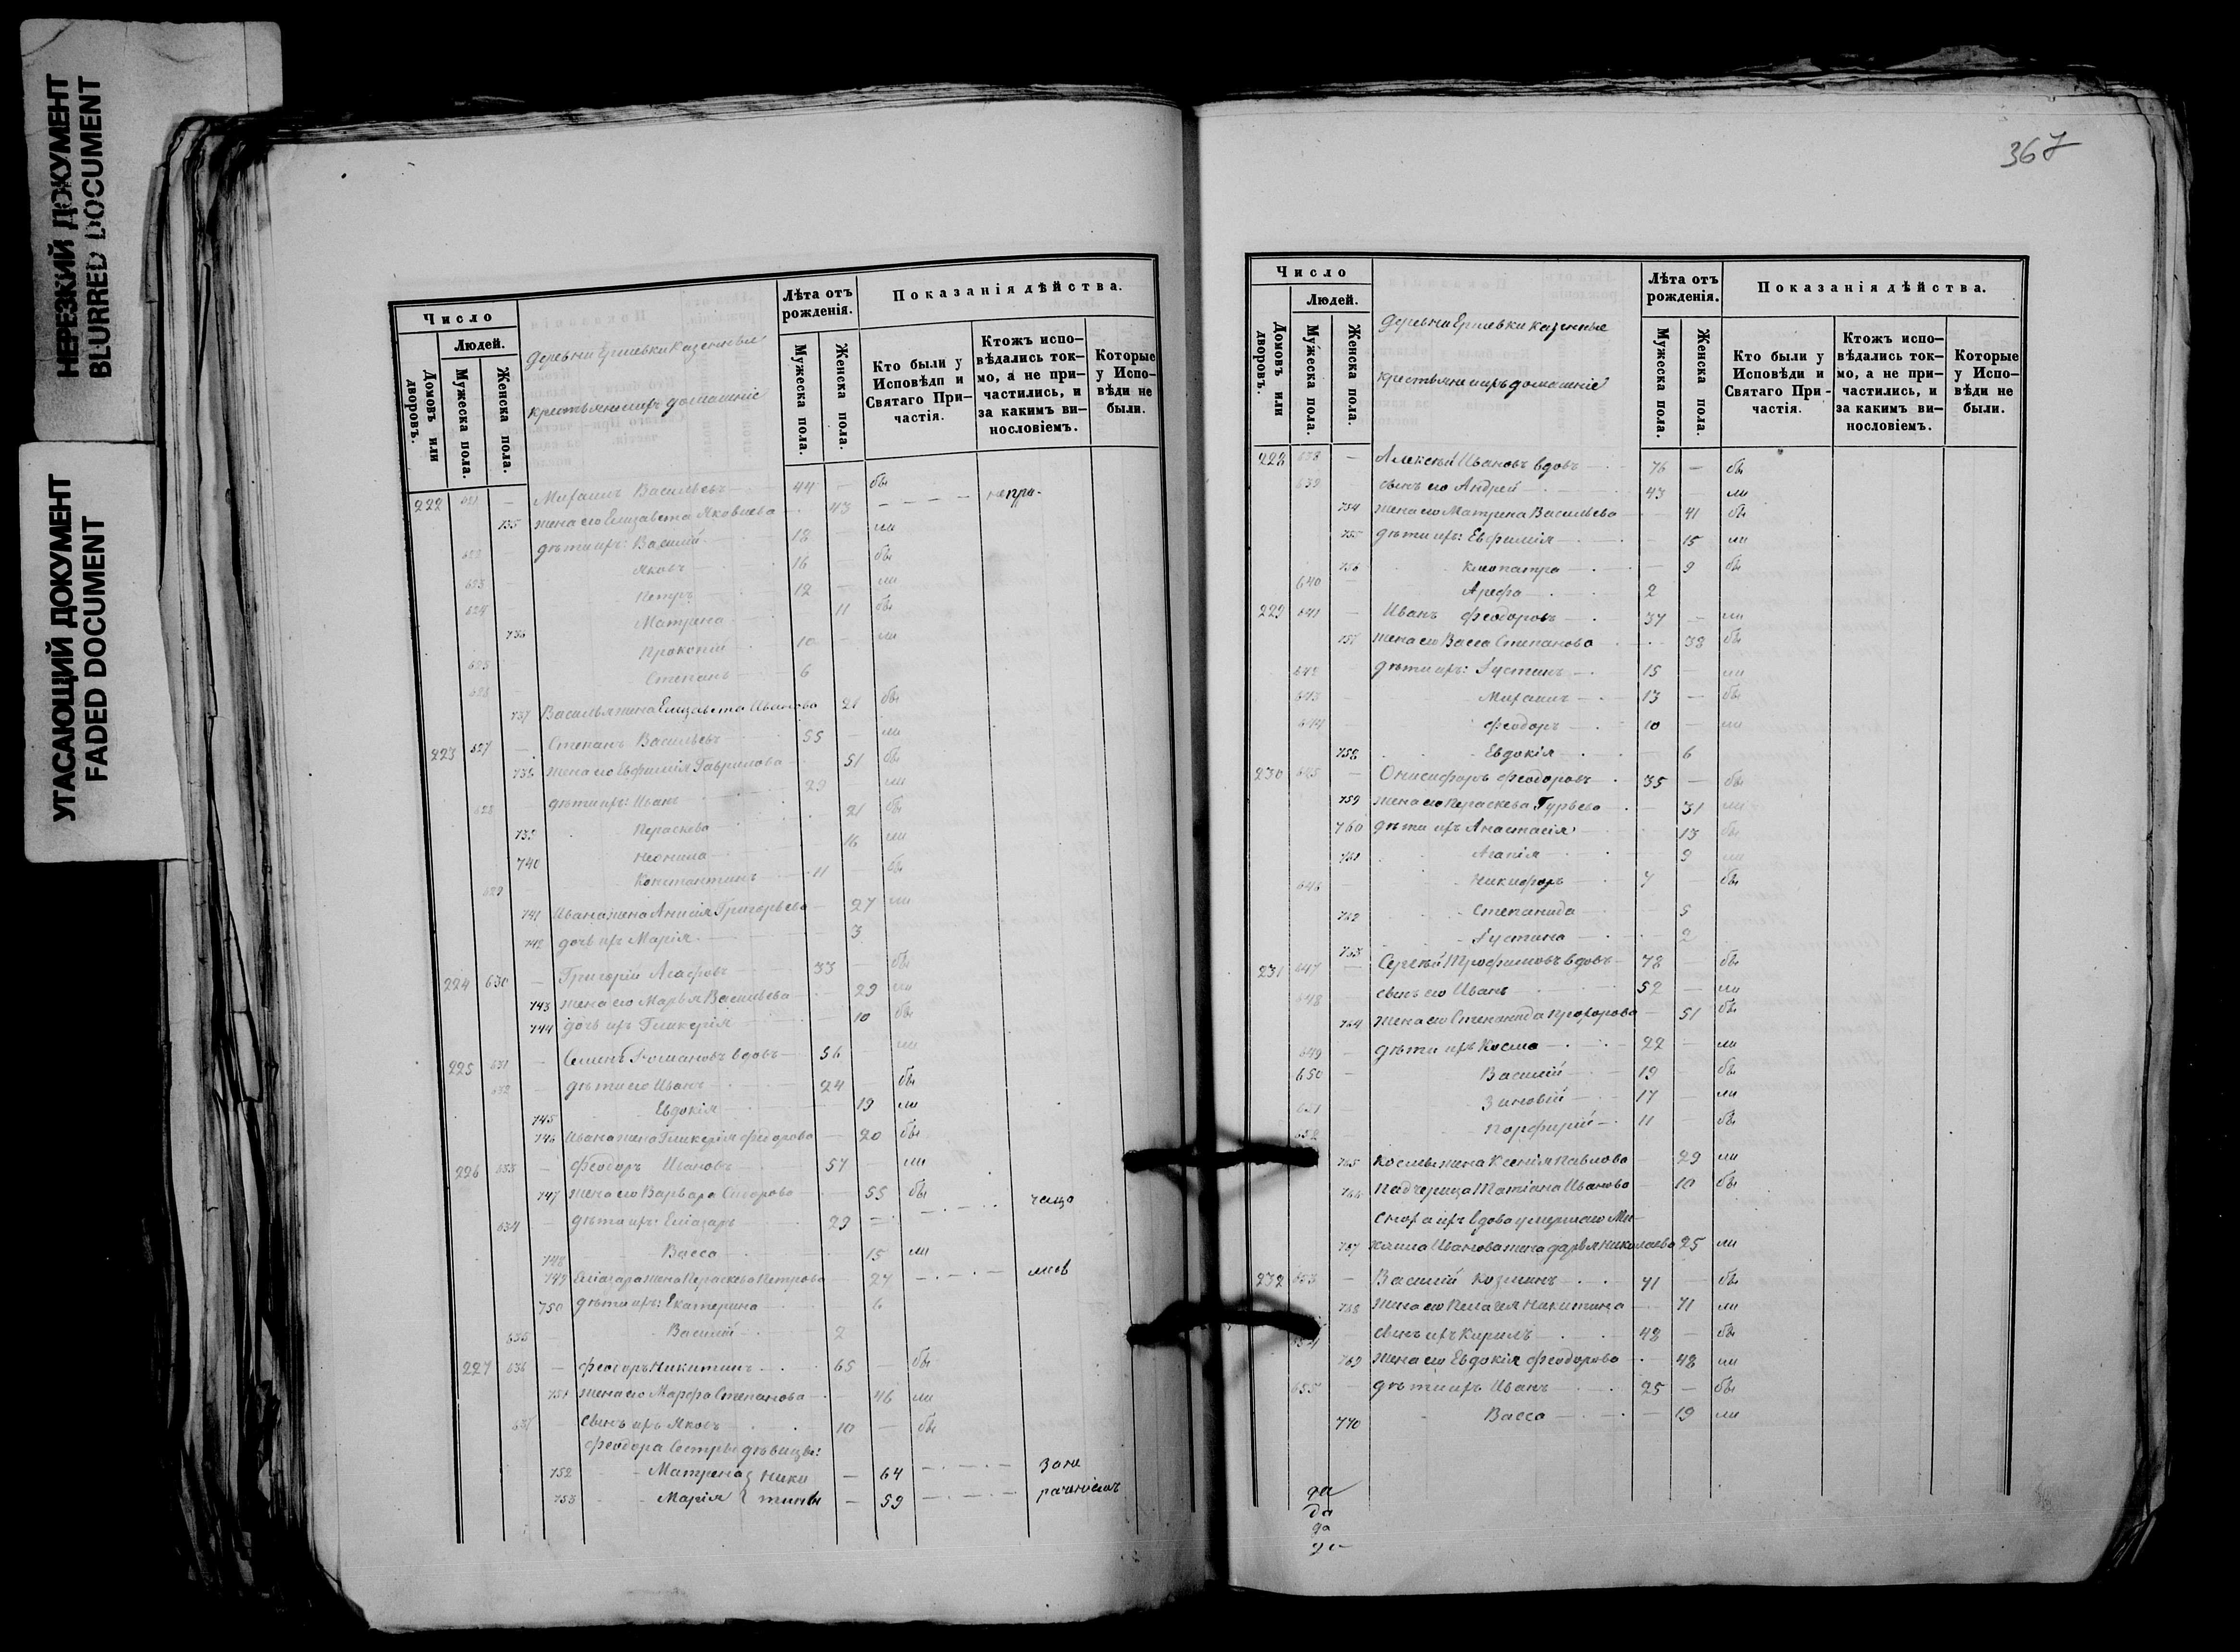 НЕРЕЗКИЙ ДОКУМЕНТ
BLURRED DOCUMENT
УГАСАЮЩИЙ ДОКУМЕНТ
FADED DOCUMENT
Число
Людей.
Домовъ или дворовъ.
Мужеска пола.
Женска пола.
деревни Ершевки казенные
крестьяне ихъ домашніе
Лѣта отъ рожденія.
Мужеска пола.
Женска пола.
Показанія дѣйства.
Кто были у Исповѣди и Святаго При-
частія.
Ктожъ испо-
вѣдались ток-
мо, а не при-
частились, и
за какимъ ви-
нословіемъ.
Которые
у Испо-
вѣди не
были.
222 621 — Михаилъ Васильевъ 44 — бы
735 жена его Елизавета Яковлева 43 непри-
622 дѣти ихъ: Василій 18 — ли
623 Яковъ 16 — бы
624 Петръ 12 — ли
736 Матрена 11 бы
625 Прокопій 10 — ли
626 Степанъ 6
737 Василья жена Елизавета Иванова 21 бы
223 627 — Степанъ Васильевъ 55 — ли
738 жена его Евфимія Гаврилова 51 бы
628 дѣти ихъ: Иванъ 29 — ли
739 Пераскева 21 бы
740 Неонила 16 ли
629 Константинъ 11 — бы
741 Ивана жена Анисія Григорьева 27 ли
742 дочь ихъ Марія 3
224 630 — Григорій Агафовъ 33 — бы
743 жена его Марья Васильева 29 ли
744 дочь ихъ Гликерія 10 бы
225 631 — Семенъ Романовъ вдовъ 56 ли
632 — дѣти его Иванъ 24 — бы
745 Евдокія 19 ли
746 Ивана жена Гликерія Федорова 20 бы
226 633 — Феодоръ Ивановъ 57 — ли
747 жена его Варвара Сидорова 55 бы
634 — дѣти ихъ: Еліазаръ 29 — чащо
748 Васса 15 ли
749 Еліазара жена Пераскева Петрова 27
750 дѣти ихъ: Екатерина 6
635 Василій 2
227 636 — Феодоръ Никитинъ 65 — бы
751 жена его Марфа Степанова 46 ли
637 сынъ ихъ Яковъ 10 — бы
Феодора сестры дѣвицы:
752 Матрена Ники — 64 Зане
753 Марія тины — 59 раченіемъ
367
Число
Людей.
Домовъ или дворовъ.
Мужеска пола.
Женска пола.
деревни Ершевки казенные
крестьяне ихъ домашніе
Лѣта отъ рожденія.
Мужеска пола.
Женска пола.
Показанія дѣйства.
Кто были у Исповѣди и Святаго При-
частія.
Ктожъ испо-
вѣдались ток-
мо, а не при-
частились, и
за какимъ ви-
нословіемъ.
Которые
у Испо-
вѣди не
были.
228 638 — Алексѣй Ивановъ вдовъ 76 — бы
639 сынъ его Андрей 43 — ли
754 жена его Матрена Васильева 41 бы
755 дѣти ихъ: Евфимія 15 ли
756 Клеопатра 9 бы
640 — Арефа 2
229 641 — Иванъ Феодоровъ 37 — ли
757 жена его Васса Степанова 38 бы
642 — дѣти ихъ: Густинъ 15 — ли
643 — Михаилъ 13 — бы
644 — Феодоръ 10 — ли
758 Евдокія — 6
230 645 — Онисифоръ Феодоровъ 35 — бы
759 жена его Пераскева Гурьева — 31 ли
760 дѣти ихъ Анастасія 13 бы
761 Агапія 9 ли
646 — Никифоръ 7 — бы
762 Степанида 5
763 Густина 2
231 647 — Сергѣй Трофимовъ вдовъ 78 — бы
648 сынъ его Иванъ 52 — ли
764 жена его Степанида Прохорова 51 бы
649 — дѣти ихъ Косма 22 — ли
650 — Василій 19 — бы
651 — Зиновій 17 — ли
652 — Порфирій 11 — бы
765 Космы жена Ксенія Павлова 29 ли
766 Падчерица Татіана Иванова 10 бы
Сноха ихъ вдова умершаго Ми-
767 хаила Иванова жена Дарья Николаева 25 ли
232 653 — Василій Козминъ 71 — бы
768 жена его Пелагея Никитина 71 ли
654 — сынъ ихъ Кирилъ 48 — бы
769 жена его Евдокія Феодорова 48 ли
655 — дѣти ихъ Иванъ 25 — бы
770 Васса — 19 ли
да
да